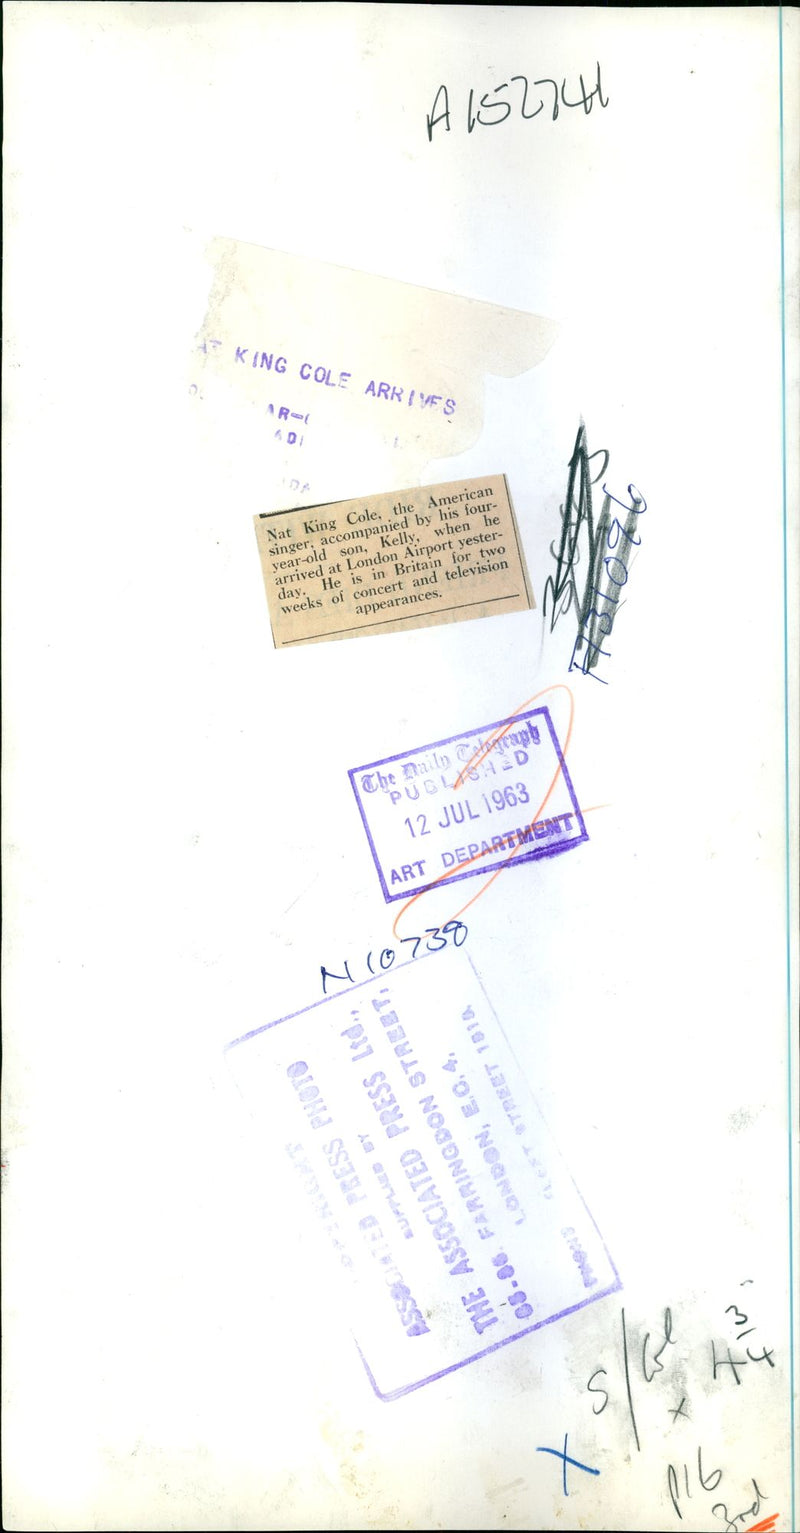 A152741
KING COLE ARRIVES
Nat King Cole, the American
singer, accompanied by his four-
year-old son, Kelly, when he
arrived at London Airport yester-
day. He is in Britain for two
weeks of concert and television
appearances.
A31096
The Daily Telegraph
PUBLISHED
12 JUL 1963
ART DEPARTMENT
N10738
ASSOCIATED PRESS PHOTO
SUPPLIED BY
THE ASSOCIATED PRESS Ltd.,
FARRINGDON STREET,
LONDON, E.C.4,
PHONE FLEET STREET 1515.
S/Col
x 4 3/4
X
P16
3rd